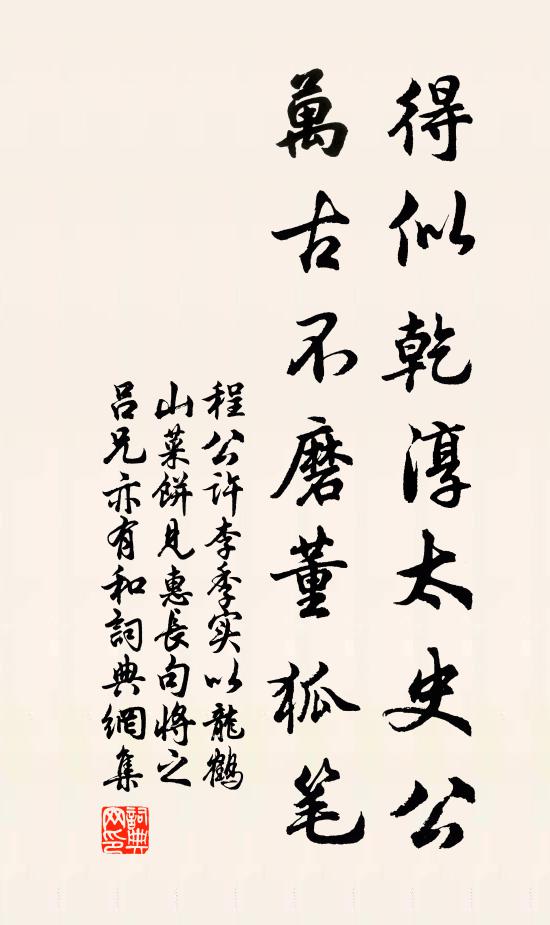 得似乾淳太史公
萬古不磨董狐笔
程公许李季实以龍鶴
山菜餅見惠長句將之
吕兄亦有和詞典網集
詞典
网印